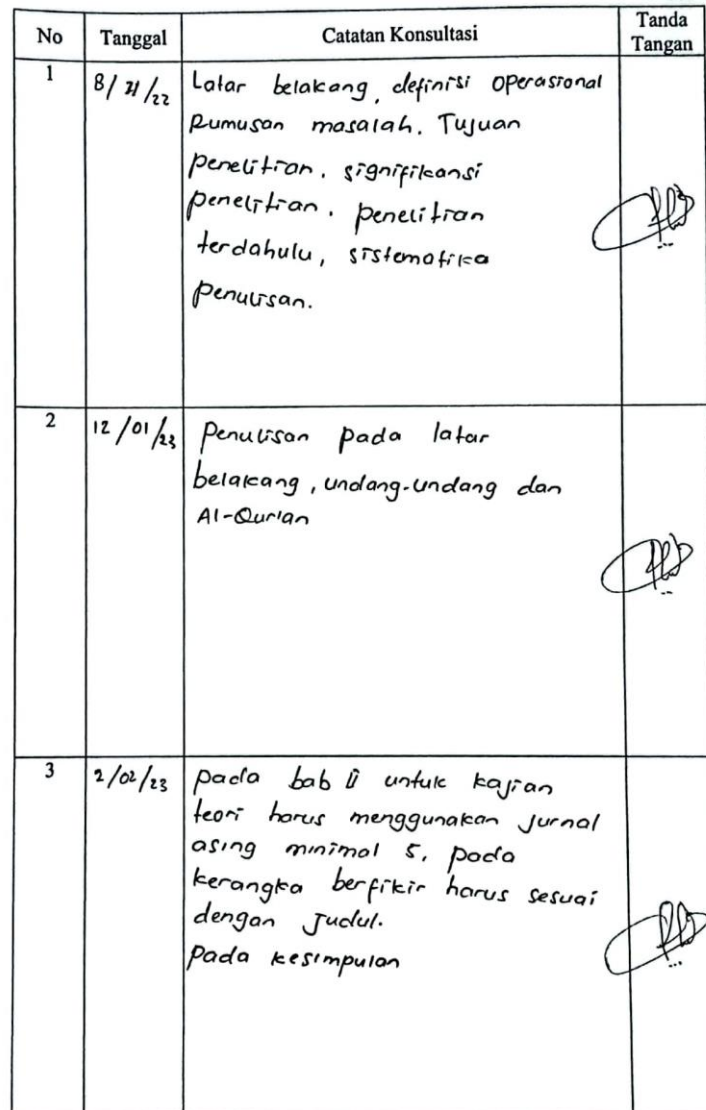 No Tanggal Catatan Konsultasi Tanda Tangan
1 8/ /22 Latar belakang, definisi operasional
Rumusan masalah. Tujuan
penelitian. signifikansi
penelitian. penelitian
terdahulu, sistematika
penulisan.
2 12/01/23 Penulisan pada latar
belakang, undang-undang dan
Al-Qur'an
3 2/02/23 pada bab II untuk kajian
teori harus menggunakan Jurnal
asing minimal 5, pada
kerangka berfikir harus sesuai
dengan Judul.
pada kesimpulan